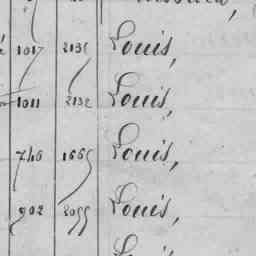 1017 2131 Louis,
1011 2132 Louis,
746 1665 Louis,
902 2055 Louis,